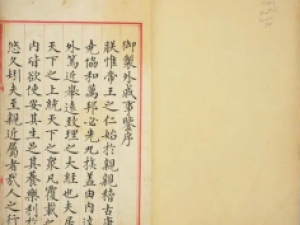 御製外戚事鑒序
朕惟帝王之仁始於親親稽古唐
堯協和萬邦必先九族蓋由内逹
外篤近舉遠致理之大經也夫居
天下之上統天下之衆凡覆載之
内皆欲使安其生足其養樂利於
悠久矧夫至親近屬者哉人之行